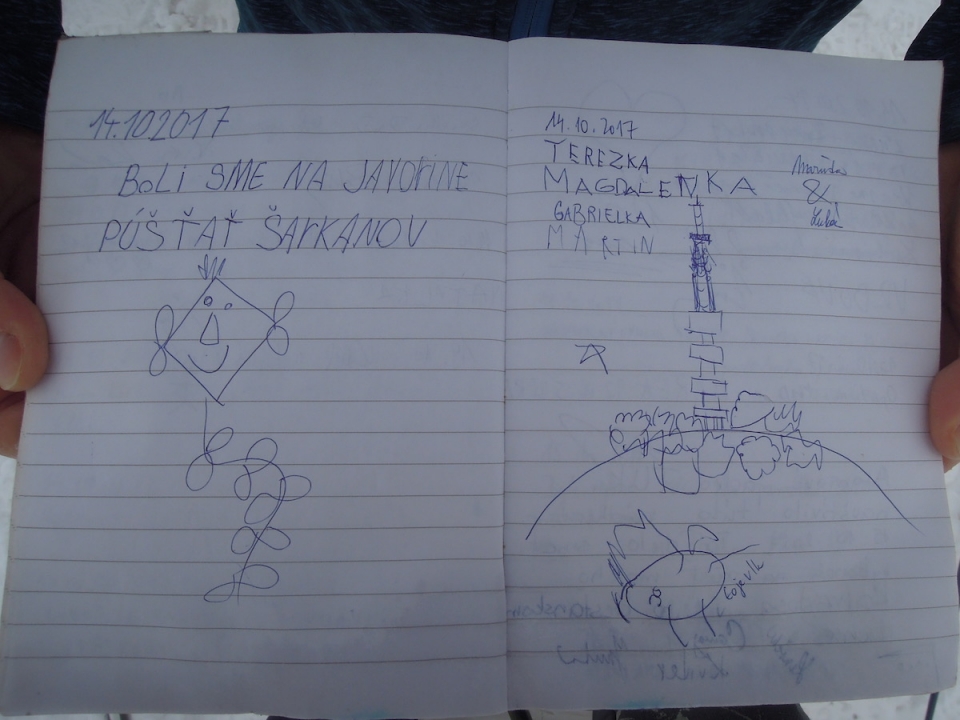 14.102017
BOLI SME NA JAVORINE
PÚŠŤAŤ ŠARKANOV
14.10.2017
TEREZKA
MAGDALENKA
GABRIELKA
MARTIN
&